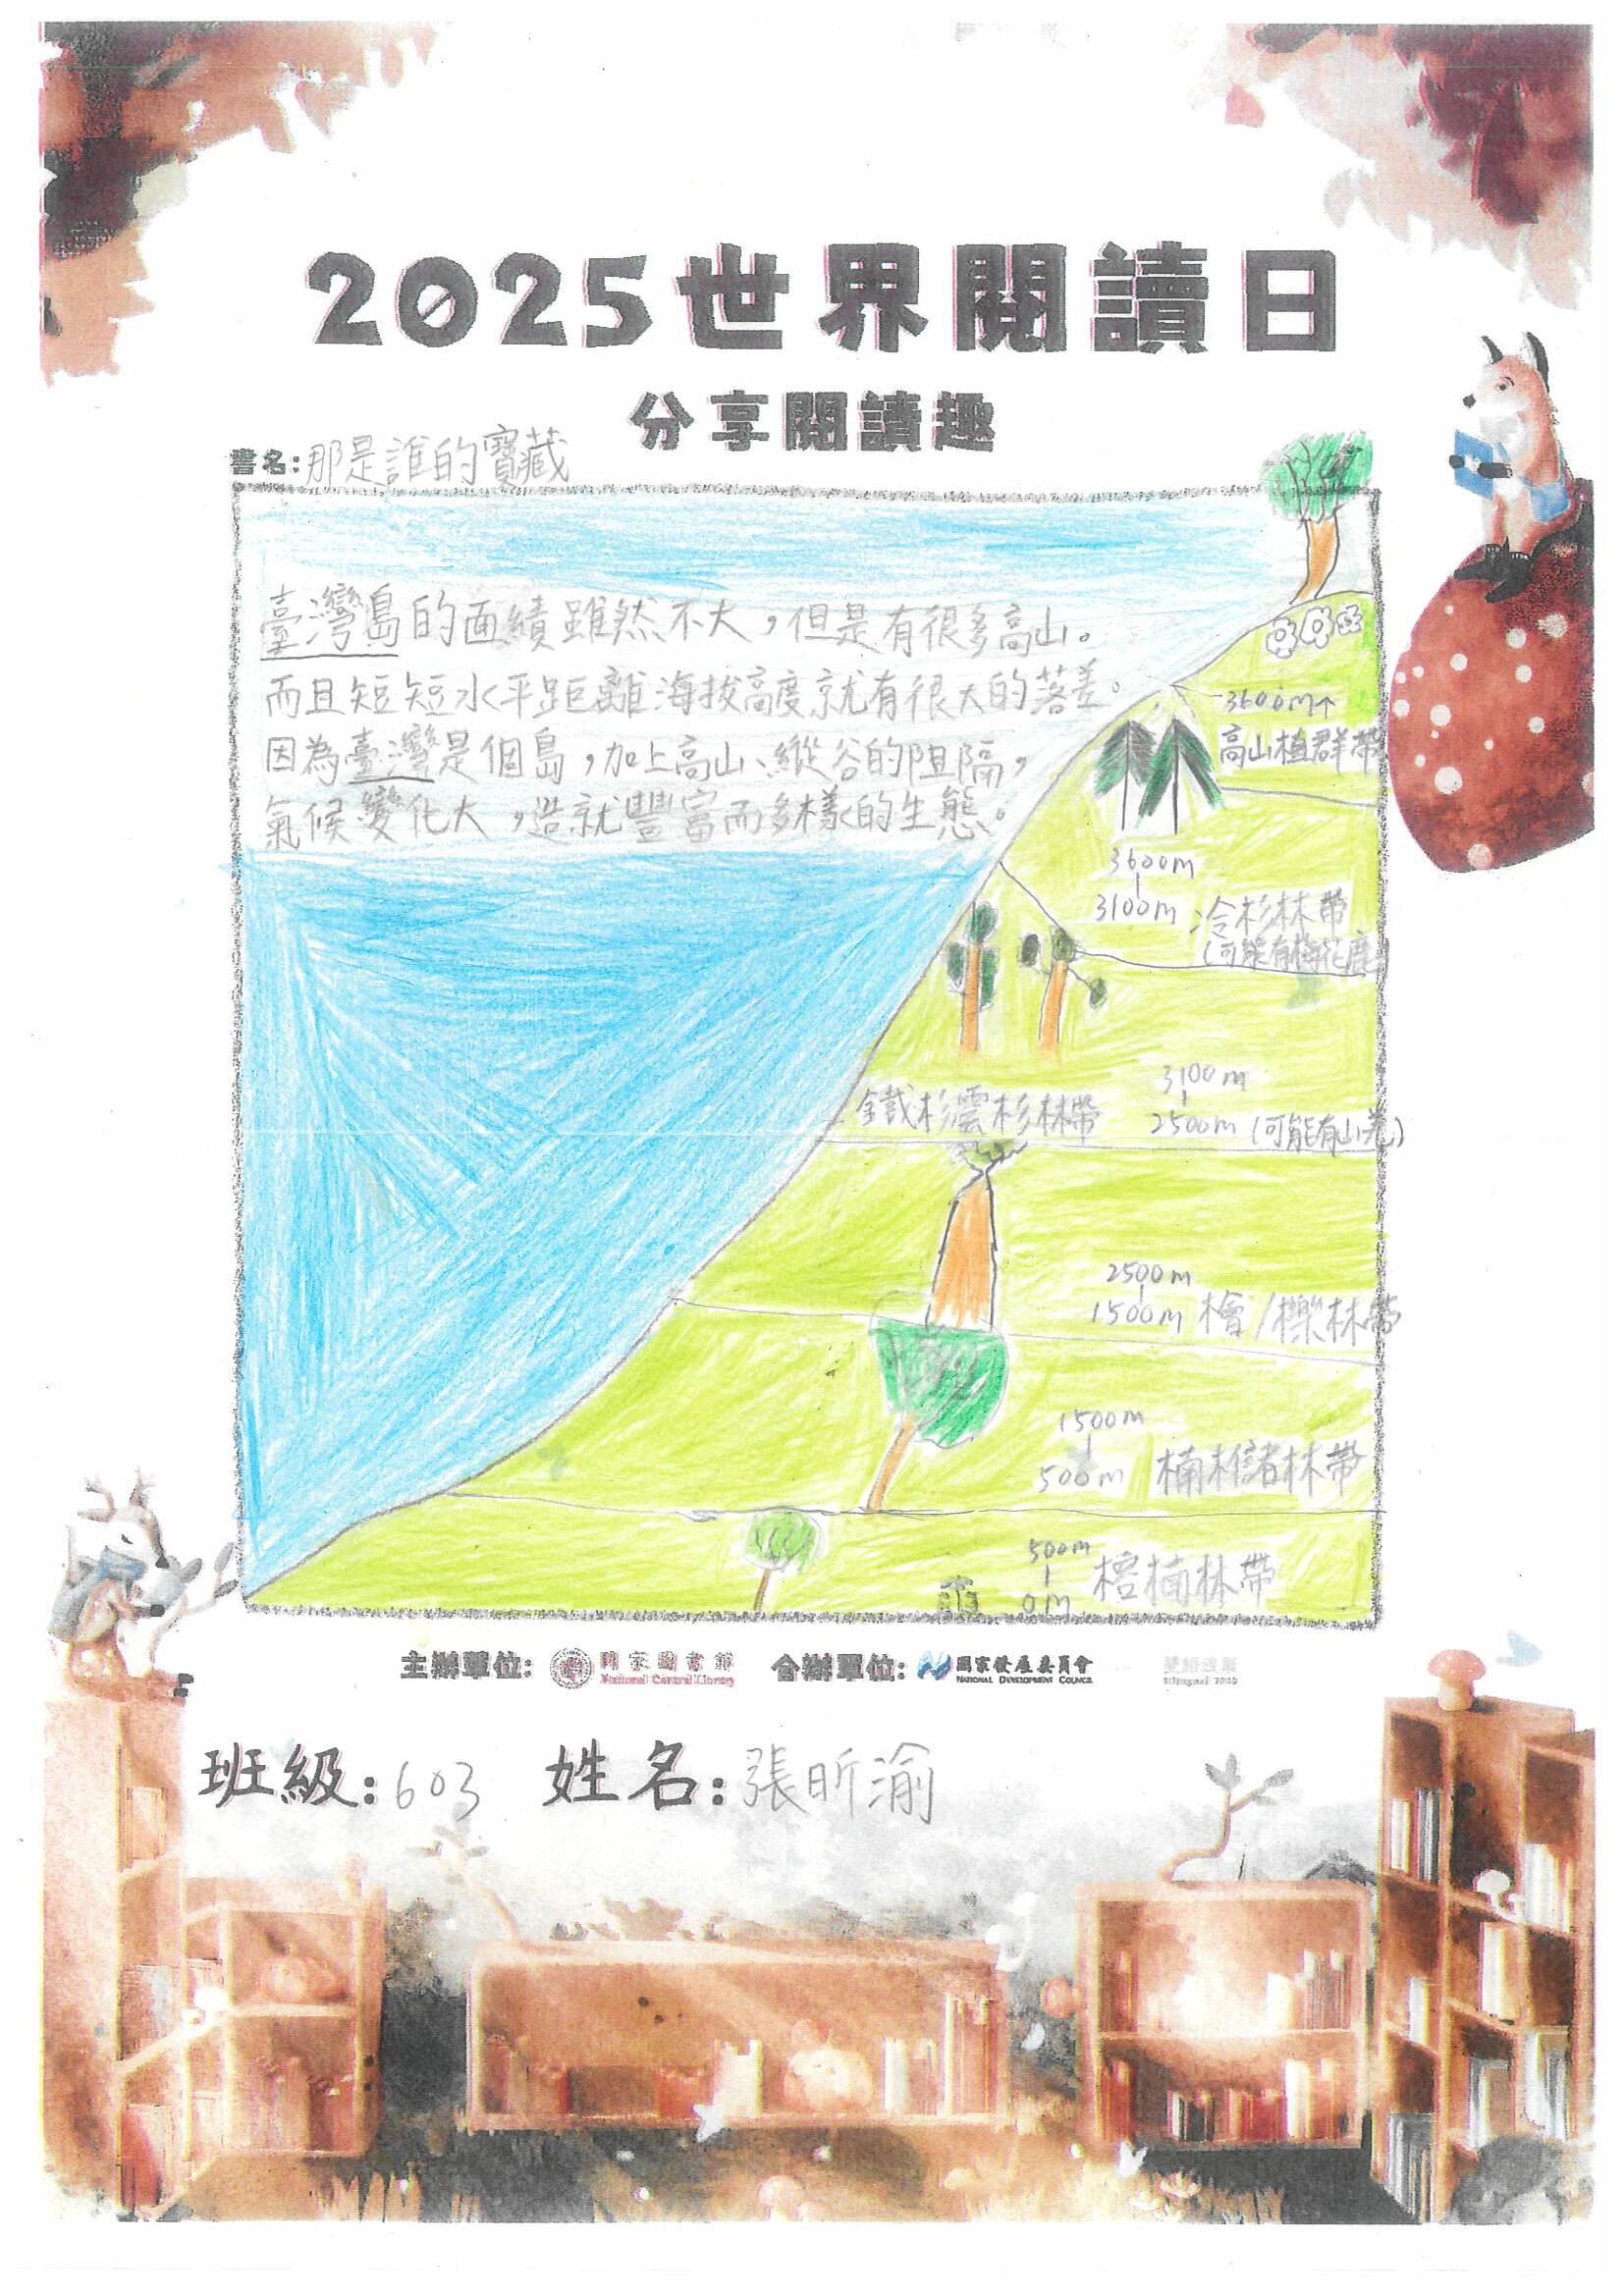 2025世界閱讀日
分享閱讀趣
書名:那是誰的寶藏
臺灣島的面績雖然不大,但是有很多高山。
而且短短水平距離海拔高度就有很大的落差。
因為臺灣是個島,加上高山、縱谷的阻隔,
氣候變化大,造就豐富而多樣的生態。
3600m↑
高山植群帶
3600m
3100m 冷杉林帶
(可能有梅花鹿)
3100m
鐵杉雲杉林帶 2500m (可能有山羌)
2500m
1500m 檜/櫟林帶
1500m
500m 楠櫧林帶
500m
0m 榕楠林帶
主辦單位: 國家圖書館 National Central Library 合辦單位: 國家發展委員會 NATIONAL DEVELOPMENT COUNCIL
班級:603 姓名:張昕渝